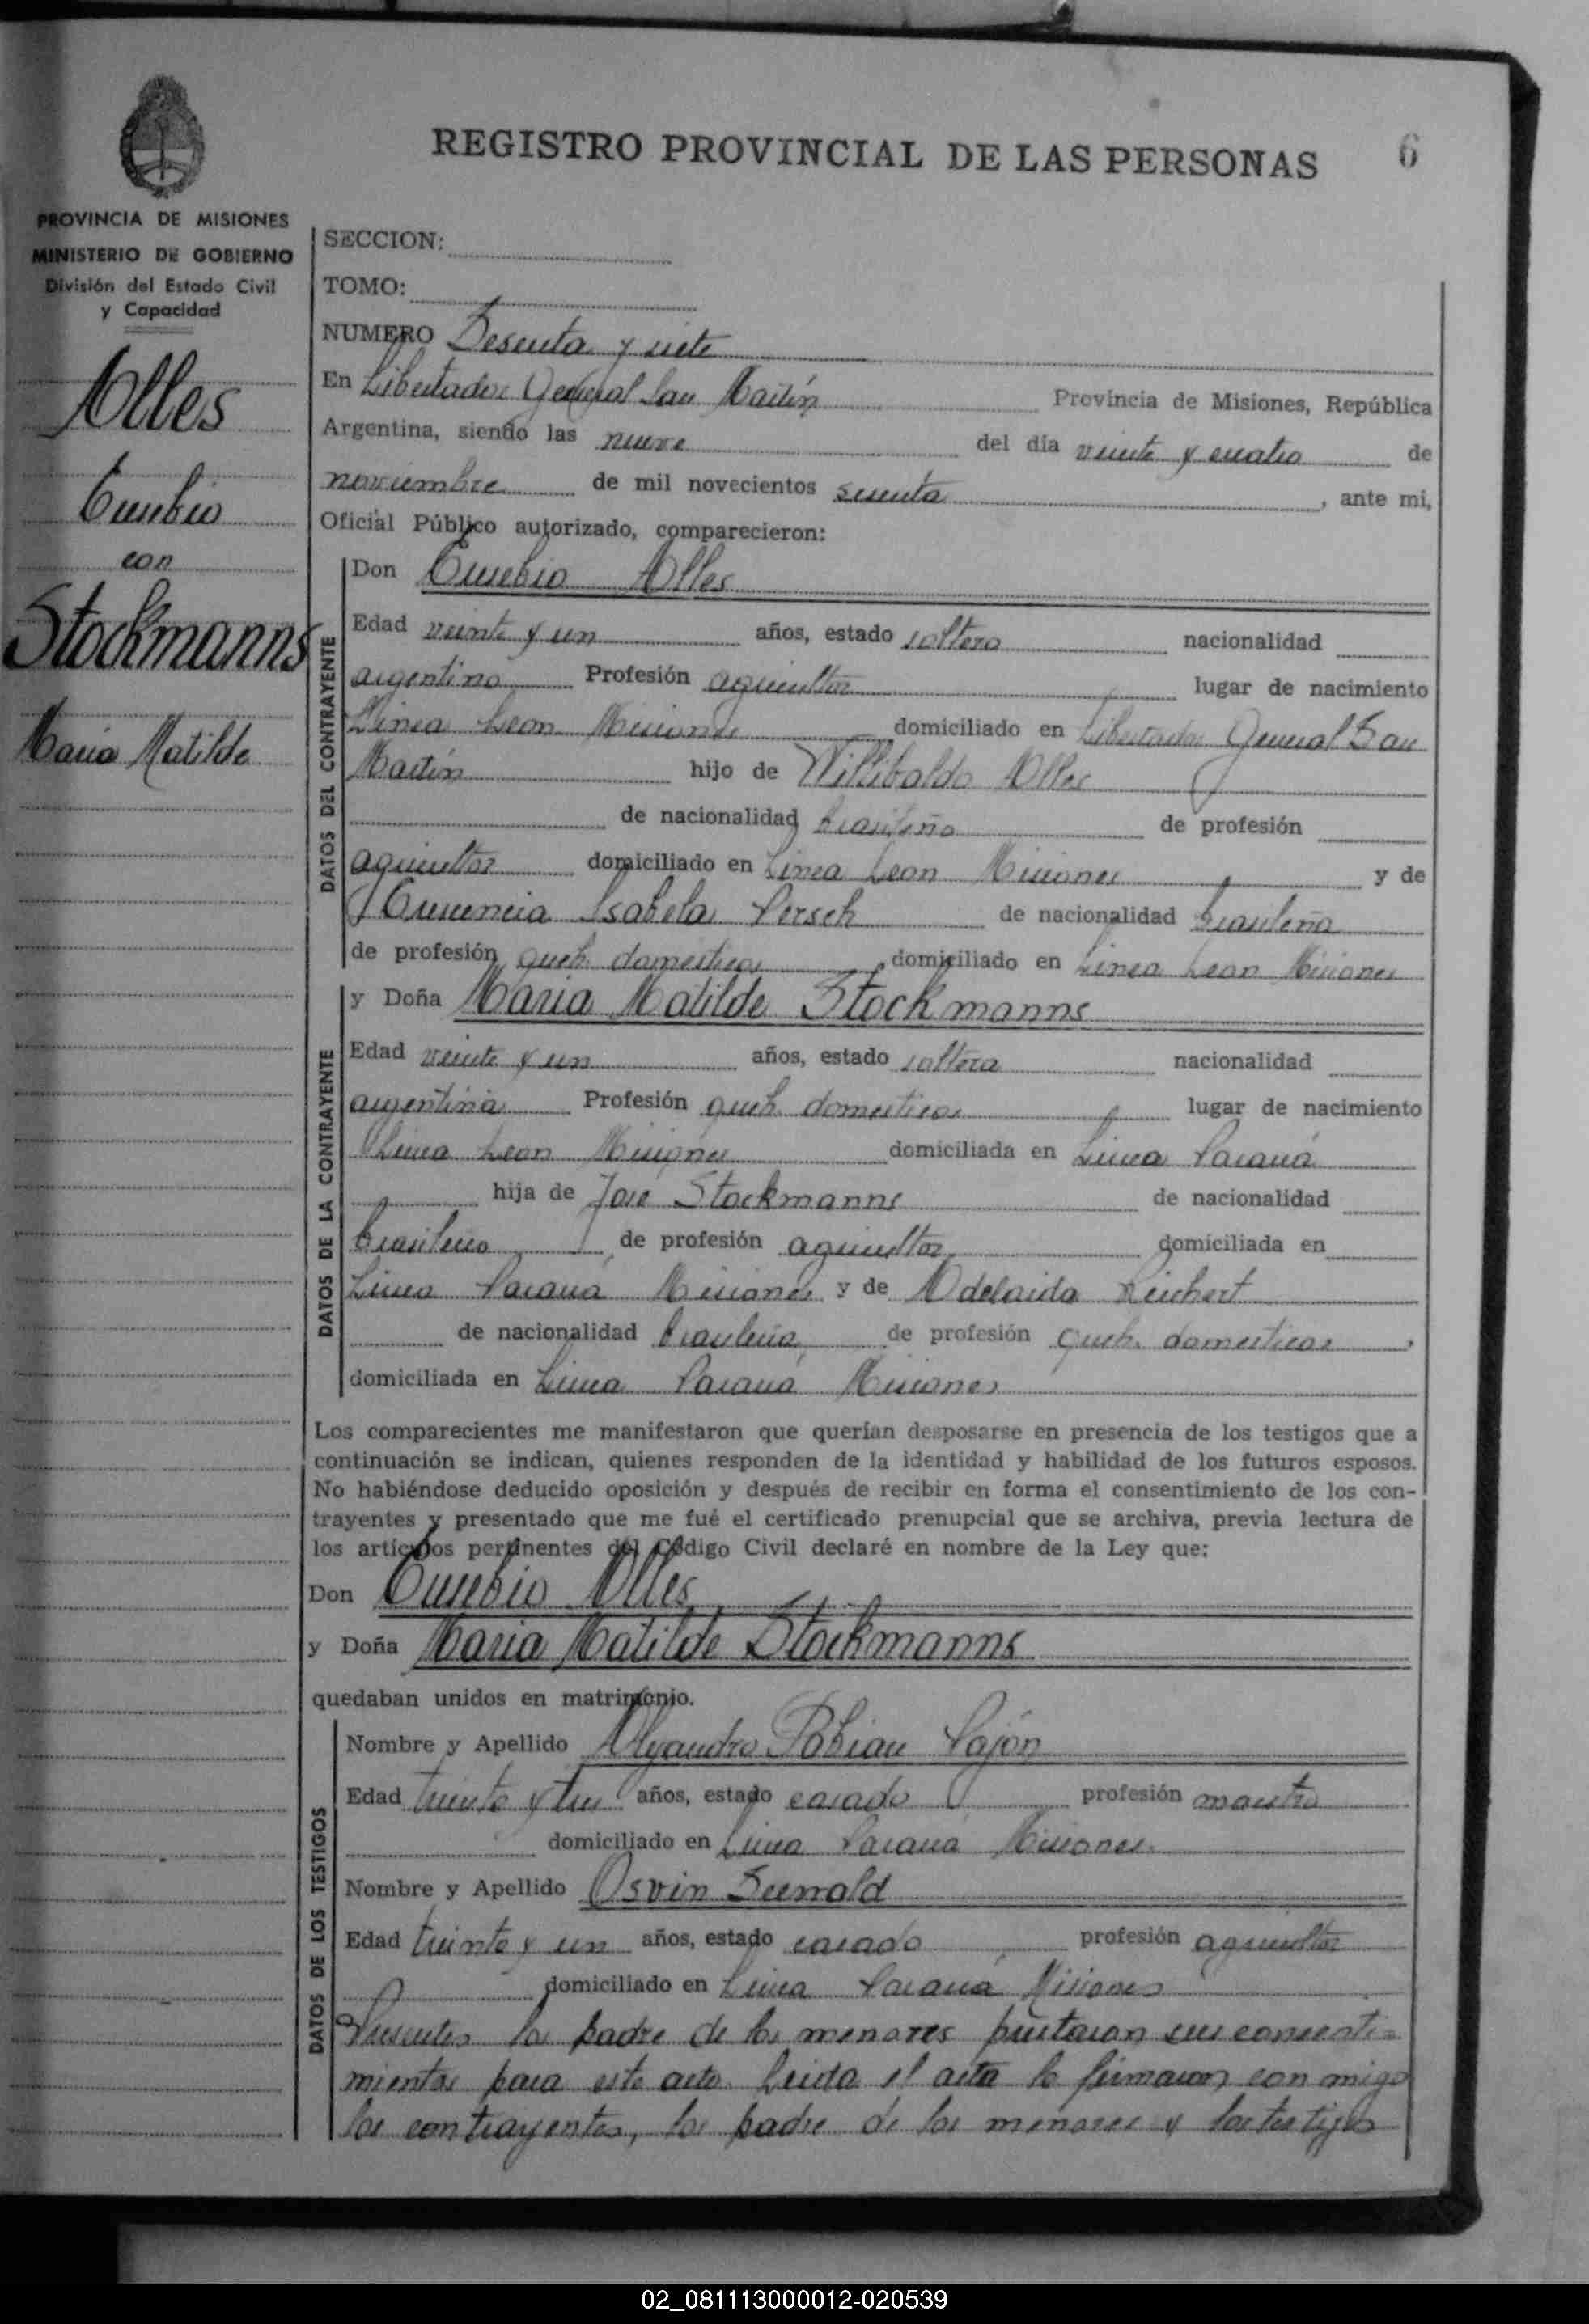 REGISTRO PROVINCIAL DE LAS PERSONAS 6
PROVINCIA DE MISIONES
MINISTERIO DE GOBIERNO
División del Estado Civil
y Capacidad
Alles
Eusebio
con
Stockmanns
Maria Matilde
SECCION:
TOMO:
NUMERO Sesenta y siete
En Libertador General San Martín Provincia de Misiones, República
Argentina, siendo las nueve del día veinte y cuatro de
noviembre de mil novecientos sesenta, ante mi,
Oficial Público autorizado, comparecieron:
DATOS DEL CONTRAYENTE
Don Eusebio Alles
Edad veinte y un años, estado soltero nacionalidad
argentino Profesión agricultor lugar de nacimiento
Linea Leon Misiones domiciliado en Libertador General San
Martín hijo de Willibaldo Alles
de nacionalidad brasileño de profesión
agricultor domiciliado en Linea Leon Misiones y de
Isabela Persch de nacionalidad brasileña
de profesión queh. domesticos domiciliado en Linea Leon Misiones
DATOS DE LA CONTRAYENTE
y Doña Maria Matilde Stockmanns
Edad veinte y un años, estado soltera nacionalidad
argentina Profesión queh. domesticos lugar de nacimiento
Linea Leon Misiones domiciliada en Linea Paraná
hija de José Stockmanns de nacionalidad
brasileño de profesión agricultor domiciliada en
Linea Paraná Misiones y de Adelaida Reichert
de nacionalidad brasileña de profesión queh. domesticos,
domiciliada en Linea Paraná Misiones
Los comparecientes me manifestaron que querían desposarse en presencia de los testigos que a
continuación se indican, quienes responden de la identidad y habilidad de los futuros esposos.
No habiéndose deducido oposición y después de recibir en forma el consentimiento de los con-
trayentes y presentado que me fué el certificado prenupcial que se archiva, previa lectura de
los artículos pertinentes del Código Civil declaré en nombre de la Ley que:
Don Eusebio Alles
y Doña Maria Matilde Stockmanns
quedaban unidos en matrimonio.
DATOS DE LOS TESTIGOS
Nombre y Apellido Alejandro Fabian Pajón
Edad treinta y tres años, estado casado profesión maestro
domiciliado en Linea Paraná Misiones
Nombre y Apellido Osvin Seewald
Edad treinta y un años, estado casado profesión agricultor
domiciliado en Linea Paraná Misiones
Presentes los padre de los menores prestaron sus consenti-
mientos para este acto. Leida el acta la firmaron con migo
los contrayentes, los padre de los menores y los testigos
02_081113000012-020539